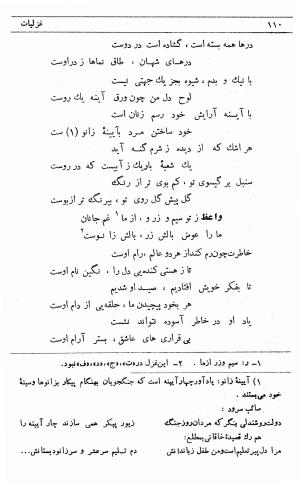 ۱۱۰ غزلیات
درها همه بسته است ، گشاده است در دوست
درهای شهان ، طاق نماها ز در اوست
با نیك و بدم ، شیوه بجز یك جهتی نیست
لوح دل من چون ورق آینه یك روست
با آیینه آرایش خود رسم زنان است
خود ساختن مرد بآیینهٔ زانو (۱) ست
هر اشك كه از دیده ز شرم گنه آید
یك شعبهٔ باریك ز آبیست كه در روست
سنبل بر گیسوی تو ، كم بوی تر از رنگ
گل پیش گل روی تو ، بیرنگ تر از بوست
واعظ ز تو سیم و زر و ، از ما ۱ غم جانان
ما را عوض بالش زر ، بالش زانوست ۲
خاطرت چون رم كند از هر دو عالم ، رام اوست
تا ز هستی كنده‌یی دل را ، نگین نام اوست
تا بفكر خویش افتادیم ، صید او شدیم
هر بخود پیچیدن ما ، حلقه‌یی از دام اوست
یاد او در خاطر آسوده نتواند نشست
بی قراری های عاشق ، بستر آرام اوست
۱ـ ر: سیم وزر ازما . ۲ـ این غزل در «ت» ، «ج» ، «د» ، «ف» نبود.
۱) آیینهٔ زانو: یادآور چهارآیینه است كه جنگجویان بهنگام پیكار بزانوها و سینهٔ
خود می‌بستند .
صائب سرود :
دولت روشندلی بنگر كه مردان روز جنگ زیور پیكر همی سازند چار آیینه را
هم رك قصیدهٔ خاقانی بمطلع:
مرا دل پیر تعلیم است و من طفل زباندانش دم تسلیم سرعشر و سر زانو دبستانش...